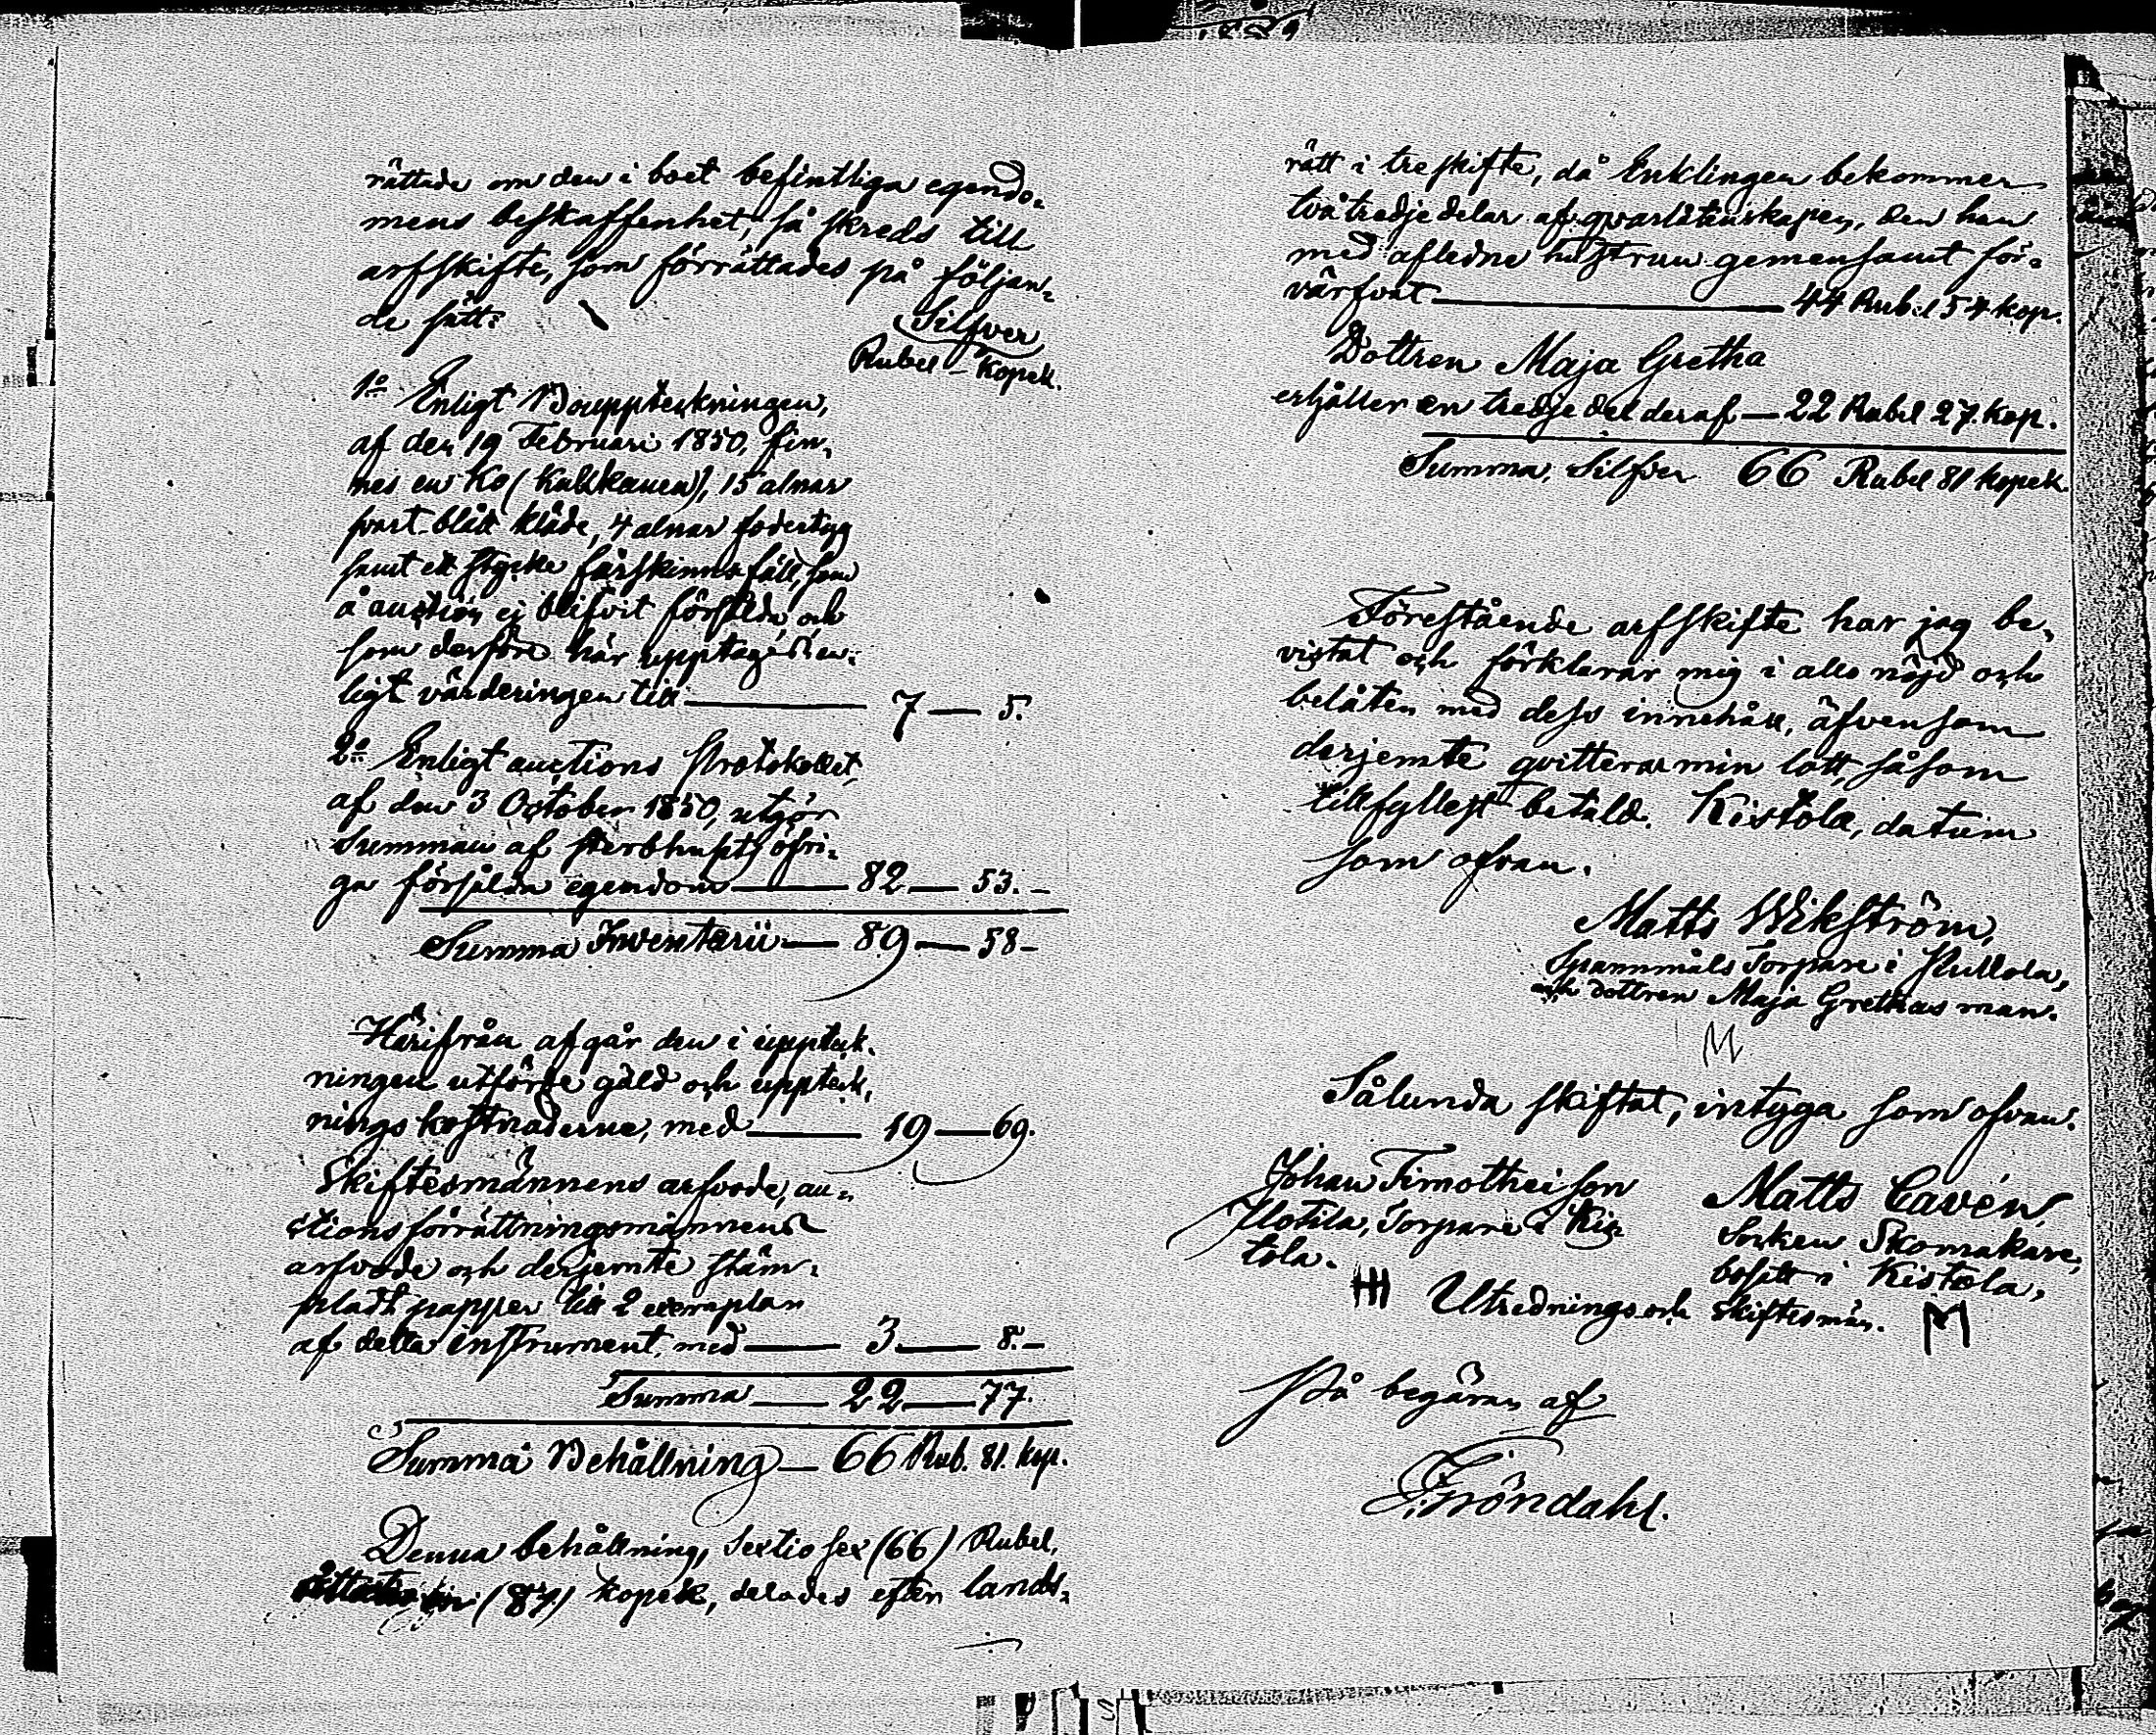 rättade om den i boet befintliga egendo-
mens beskaffenhet, så skreds till
arfskifte, som förrättades på följan-
de sätt:
Silfver
Rubel – Kopek.
1o Enligt Bouppteckningen,
af den 19 Februari 1850, fin-
nes en Ko, 15 alnar
svart-blått kläde, 4 alnar fodertyg
samt ett stycke fårskinns fäll, som
å auction ej blifvit försålda och
som derföre här upptages en-
ligt värderingen till — 7 — 5.
2o Enligt auctions Protokollet,
af den 3 October 1850, utgör
Summan af sterbhusets öfri-
ga försålda egendom — 82 — 53. –
Summa Inventarii — 89 — 58 –
Härifrån afgår den i uppteck-
ningen utförde gäld och uppteck-
nings kostnaderne, med — 19 — 69.
Skiftesmännens arfvode, au-
ctions förrättningsmännens
arfvode och derjemte stäm-
pladt papper till 2 exemplar
af detta instrument, med — 3 — 8. –
Summa — 22 — 77.
Summa Behållning — 66 Rub. 81. kop.
Denna behållning, sextio sex (66) Rubel,
kopek, delades efter lands-
rätt i treskifte, då Enklingen bekommer
två tredjedelar af qvarlåtenskapen, den han
med aflidne hustrun gemensamt för-
värfvat — 44 Rubel 54 kop.
Dottren Maja Gretha
erhåller en tredje del deraf — 22 Rubel 27. kop.
Summa, Silfver 66 Rubel 81 kopek.
Förestående arfskifte har jag be-
vistat och förklarar mig i allo nöjd och
belåten med dess innehåll, äfvensom
derjemte qvitterar min lott, såsom
tillfyllest betald. Kistola, datum
som ofvan.
Matts Wikström,
Spannmåls Torpare i Pullola,
och dottren Maja Grethas man.
M
Sålunda skiftat, intyga som ofvan:
Johan Timothei son Matts Cavén,
Ylotila, Torpare i Kis- Socken Skomakare,
tola. bosatt i Kistola,
Utrednings och skiftesmän. M
På begäran af
F. Gröndahl.